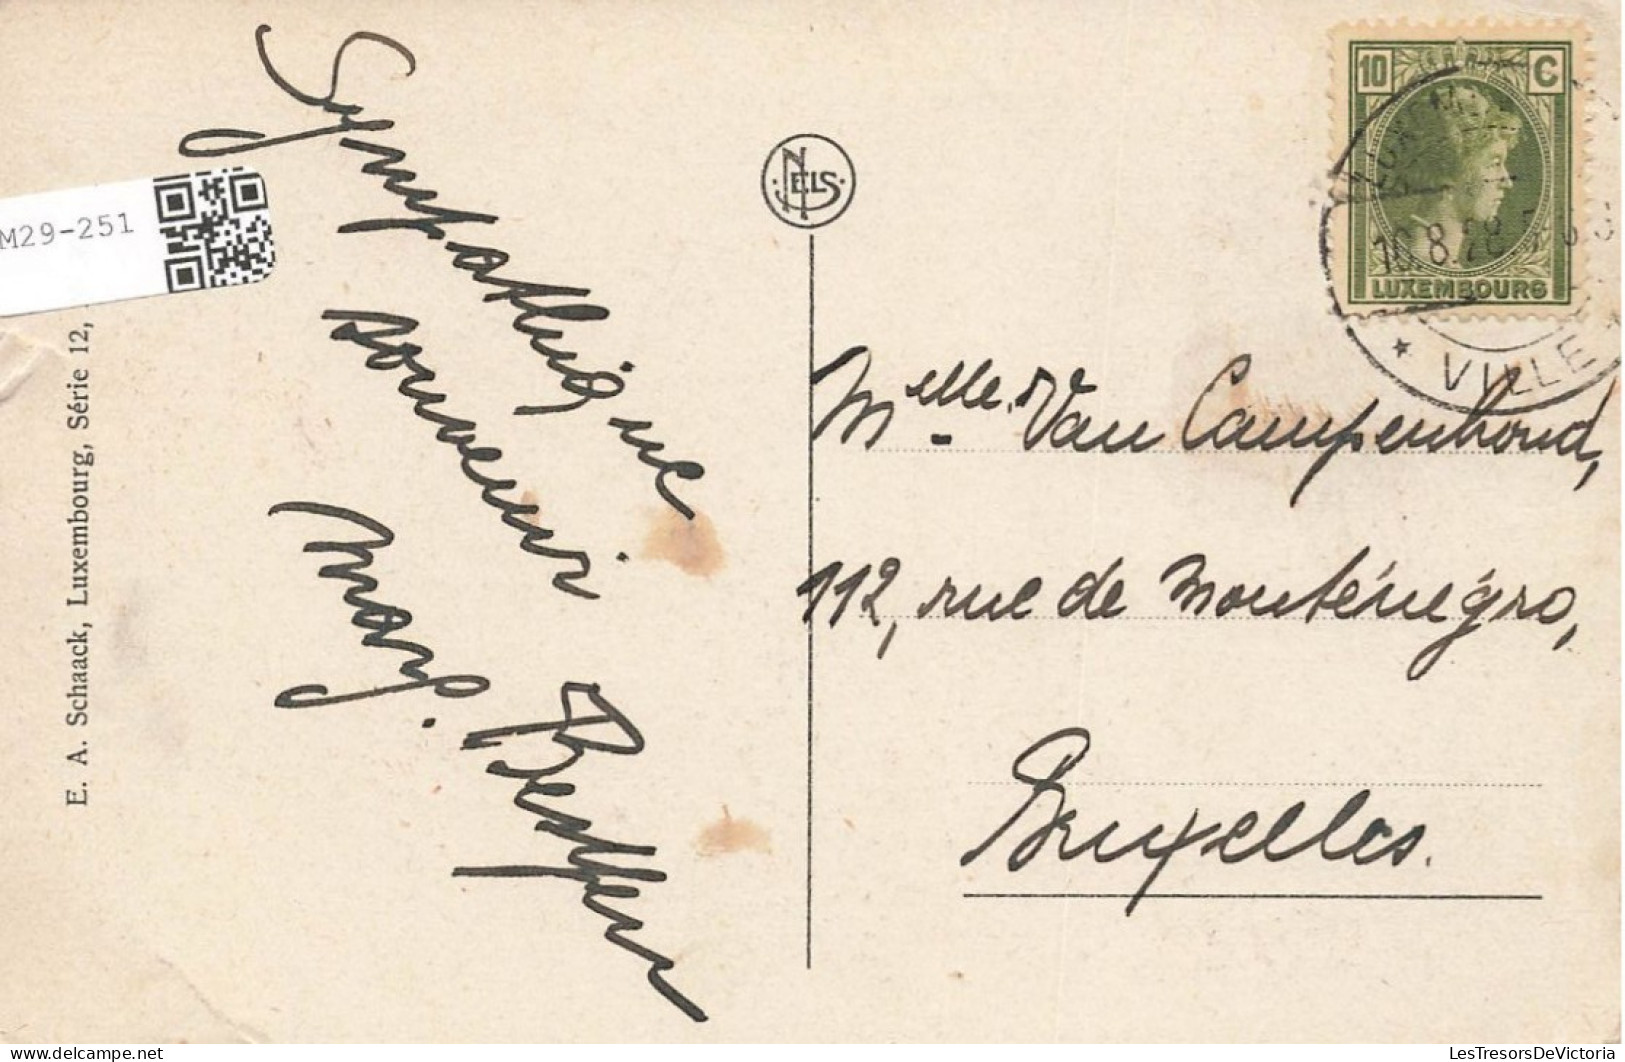 M29-251
E. A. Schaack, Luxembourg, Série 12,
Sympathique
souvenir
NELS
10 C
LUXEMBOURG
10.8.28
VILLE
Melle. Van Campenhoud,
112, rue de Monténégro,
Bruxelles.
delcampe.net
LesTresorsDeVictoria